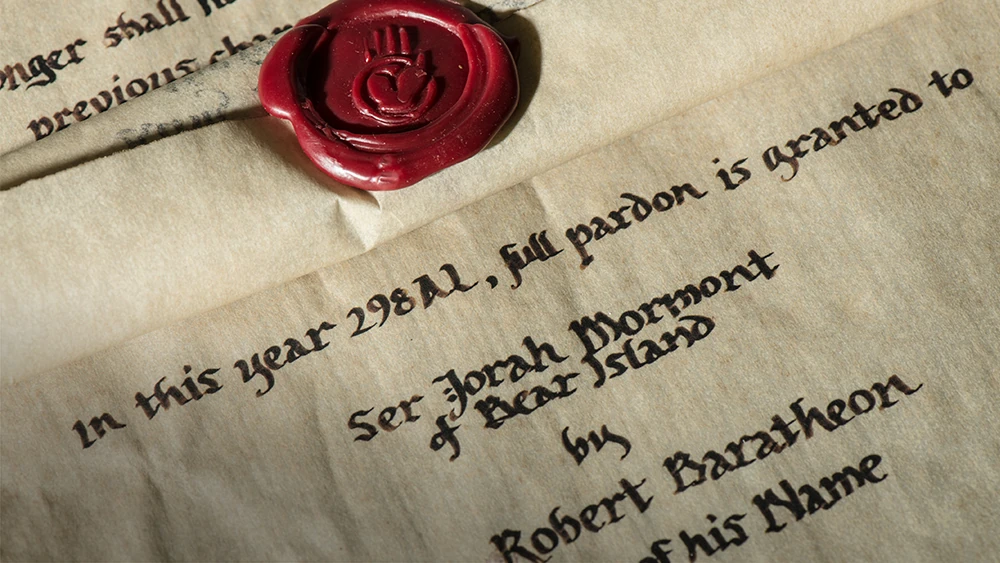 onger shall
previous
In this year 298AL, full pardon is granted to
Ser Jorah Mormont
of Bear Island
by
Robert Baratheon
of his Name